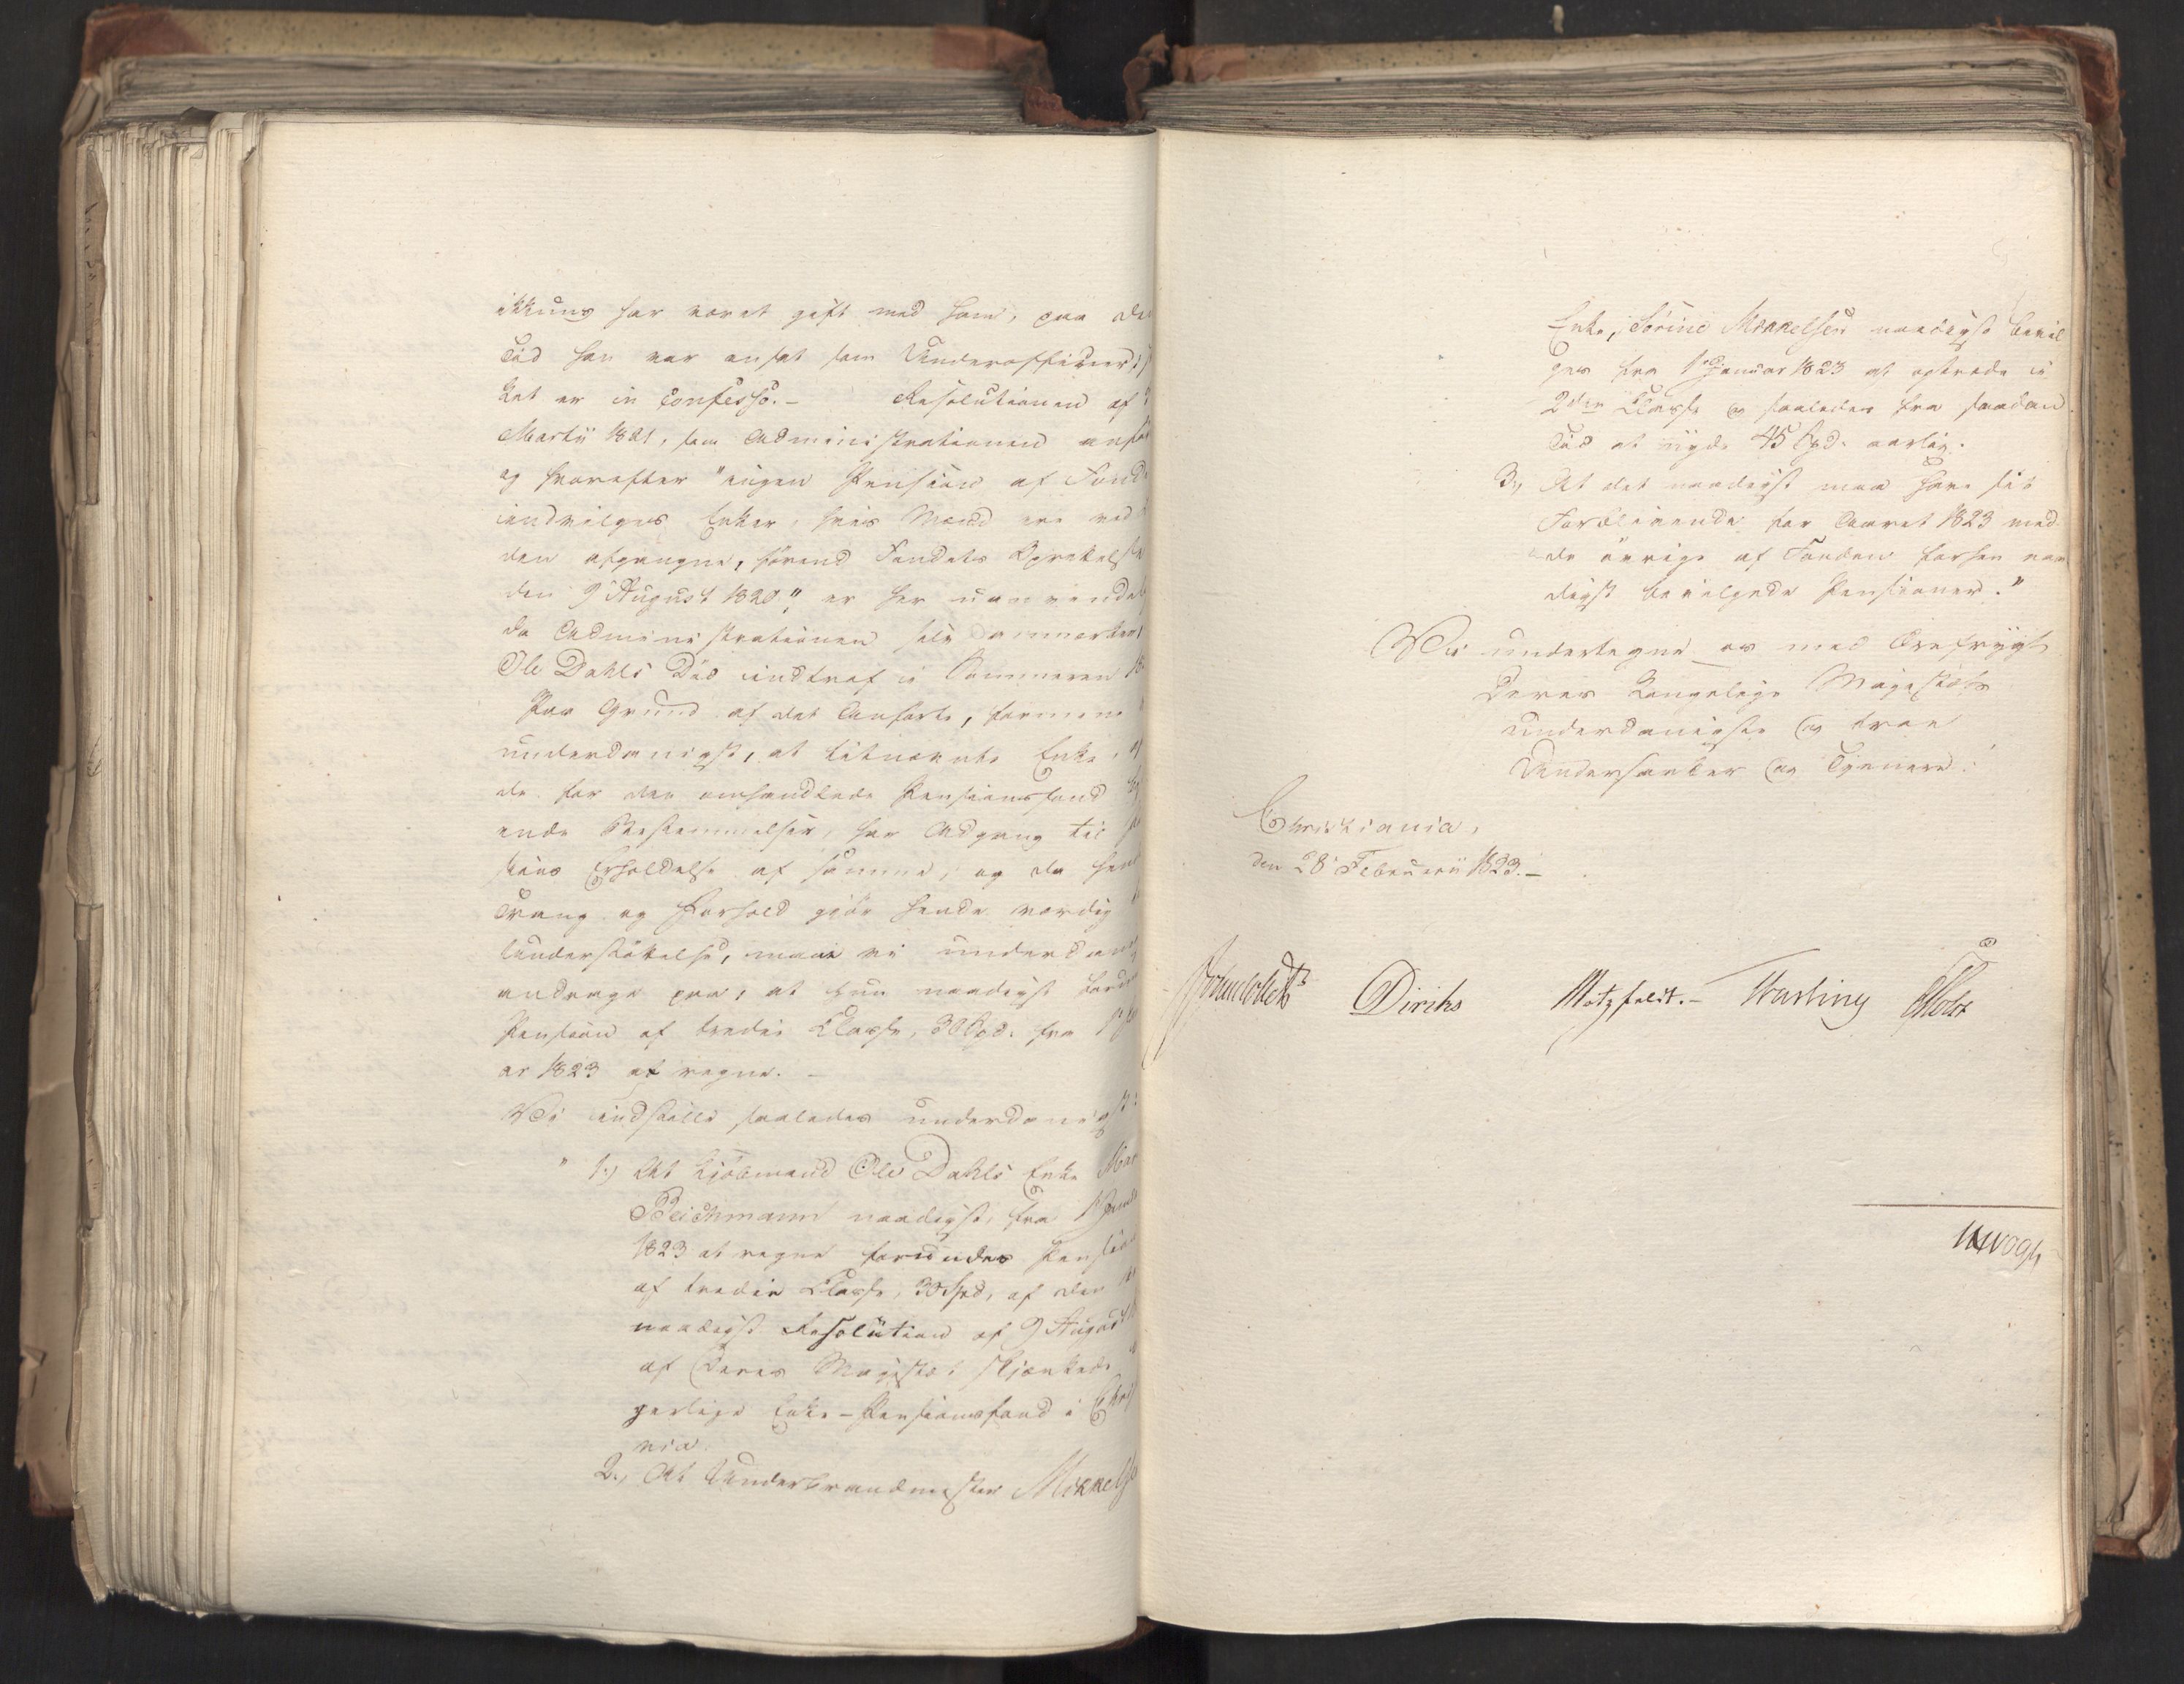 ikkuns har været gift med ham, paa den
Tid han var ansat som Underofficier,
ket er in Confesso. – Resolutionen af
Martii 1821, som Administrationen anfør
og hvorefter "ingen Pension af Fond
indvilges Enker, hvis Mænd ere ved
den afgangne, førend Fondets Oprettelse
den 9 August 1820", er her uanvendel
da Administrationen selv anmærker,
Ole Dahls Død indtraf i Sommeren 18
Paa Grund af det Anførte, formene
underdanigst, at bemeldte Enke,
de for den omhandlede Pensionsfond
ende Bestemmelser, har Adgang til
sions Erholdelse af samme, og da hen
Trang og Forhold gjør hende værdig
Understøttelse, maae vi underdanigst
andrage paa, at hun naadigst
Pension af tredie Classe, 30 Spd. fra 1
ar 1823 at regne. –
Vi indstille saaledes underdanigst:
" 1.) At Kjøbmand Ole Dahls Enke Mar
Beichmann naadigst, fra 1 Janu
1823 at regne forundes Pension
af tredie Classe, 30 Spd, af den
naadigst Resolution af 9 August
af Deres Majestæt skjænkede
gerlige Enke-Pensionsfond i Chri
nia.
2.) At Underbrandmester Mikkels
Enke, Sørine Mikkelsen naadigst bevil
ges fra 1ste Januar 1823 at optræde i
2den Classe og saaledes fra saadan
Tid at nyde 45 Spd. aarlig.
3.) At det naadigst maa have sit
Forblivende for Aaret 1823 med
de øvrige af Fonden forhen naa
digst bevilgede Pensioner."
Vi undertegne os med Ærefrygt
Deres Kongelige Majestæts
underdanigste og troe
Undersaatter og Tjenere.
Christiania,
den 28 Februarii 1823. –
Diriks Motzfeldt. – Holst
Vogt